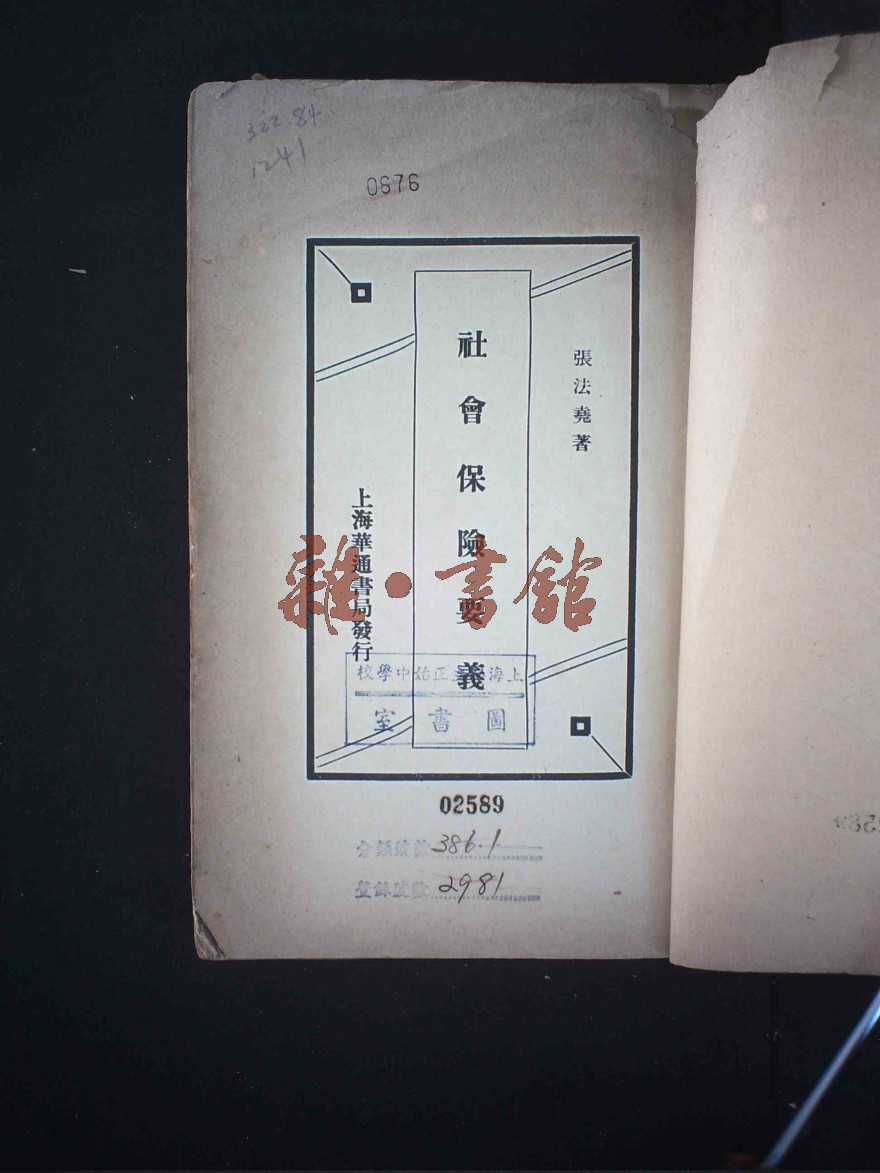 322.84
1241
0676
張法堯著
社會保險要義
上海華通書局發行
雜·書館
上海
正始中學校
圖書室
02589
分類號數 386.1
登錄號數 2981